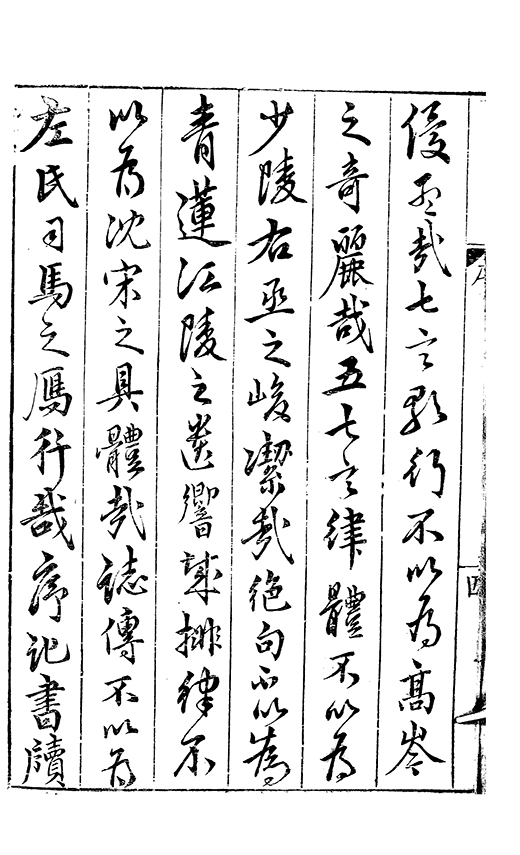 優孟哉七言歌行不以為高岑
之奇麗哉五七言律體不以為
少陵右丞之峻潔哉絕句不以為
青蓮江陵之遺響哉排律不
以為沈宋之具體哉誌傳不以為
左氏司馬之鴈行哉序記書牘
四